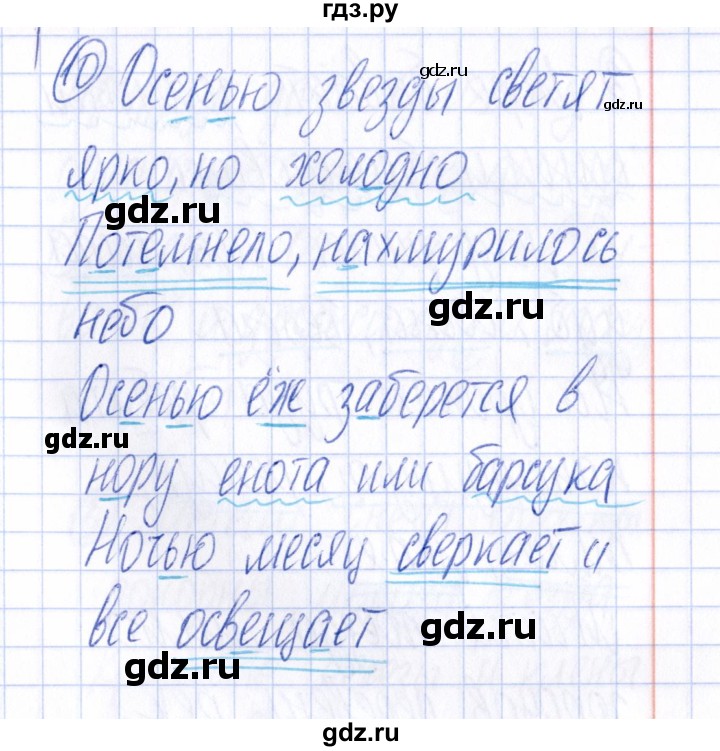 гдз.ру
10 Осенью звезды светят
gdz.ru
gdz.ru
ярко, но холодно
gdz.ru
Потемнело, нахмурилось
gdz.ru
небо
Осенью ёж заберется в
gdz.ru
нору енота или барсука
Ночью месяц сверкает и
все освещает
gdz.ru
gdz.ru
gdz.ru